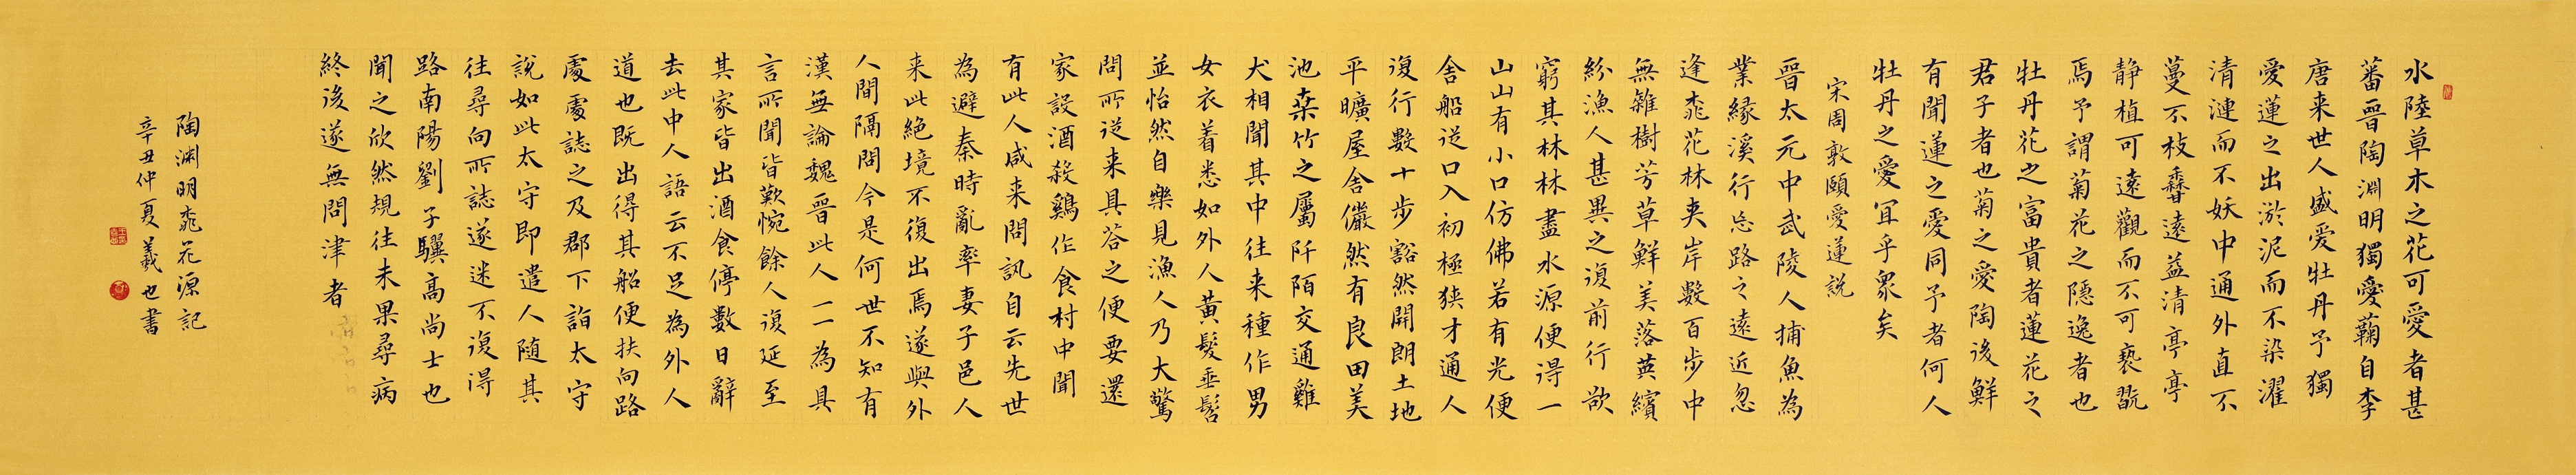 水陸草木之花可愛者甚
蕃晉陶淵明獨愛菊自李
唐来世人盛愛牡丹予獨
愛蓮之出淤泥而不染濯
清漣而不妖中通外直不
蔓不枝香遠益清亭亭
静植可遠觀而不可褻翫
焉予謂菊花之隱逸者也
牡丹花之富貴者蓮花之
君子者也菊之愛陶後鮮
有聞蓮之愛同予者何人
牡丹之愛宜乎衆矣
宋周敦頤愛蓮説
晉太元中武陵人捕魚為
業緣溪行忘路之遠近忽
逢桃花林夾岸數百步中
無雜樹芳草鮮美落英繽
紛漁人甚異之復前行欲
窮其林林盡水源便得一
山山有小口仿佛若有光便
舍船從口入初極狹才通人
復行數十步豁然開朗土地
平曠屋舍儼然有良田美
池桑竹之屬阡陌交通雞
犬相聞其中往来種作男
女衣着悉如外人黃髮垂髫
並怡然自樂見漁人乃大驚
問所從来具答之便要還
家設酒殺鷄作食村中聞
有此人咸来問訊自云先世
為避秦時亂率妻子邑人
来此絶境不復出焉遂與外
人間隔問今是何世不知有
漢無論魏晉此人一一為具
言所聞皆歎惋餘人復延至
其家皆出酒食停數日辭
去此中人語云不足為外人
道也既出得其船便扶向路
處處誌之及郡下詣太守
說如此太守即遣人隨其
往尋向所誌遂迷不復得
路南陽劉子驥高尚士也
聞之欣然規往未果尋病
終後遂無問津者
陶淵明桃花源記
辛丑仲夏羲也書